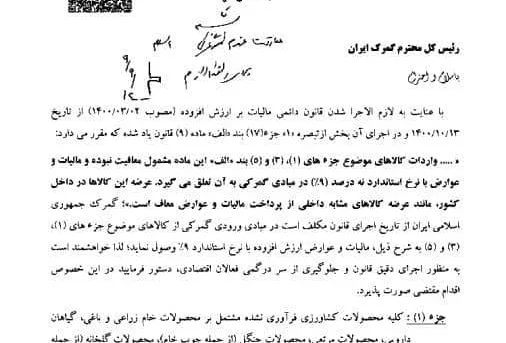 رئیس کل محترم گمرک ایران
با سلام و احترام
با عنایت به لازم الاجرا شدن قانون دائمی مالیات بر ارزش افزوده (مصوب ۱۴۰۰/۰۳/۰۲) از تاریخ
۱۴۰۰/۱۰/۱۳ و در اجرای آن بخش ازتبصره «۱» جزء(۱۷) بند «الف» ماده (۹) قانون یاد شده که مقرر می دارد:
«..... واردات کالاهای موضوع جزء های (۱)، (۳) و (۵) بند «الف» این ماده مشمول معافیت نبوده و مالیات و
عوارض با نرخ استاندارد نه درصد (۹٪) در مبادی گمرکی به آن تعلق می گیرد. عرضه این کالاها در داخل
کشور، مانند عرضه کالاهای مشابه داخلی از پرداخت مالیات و عوارض معاف است.»؛ گمرک جمهوری
اسلامی ایران از تاریخ اجرای قانون مکلف است در مبادی ورودی گمرکی از کالاهای موضوع جزء های (۱)،
(۳) و (۵) به شرح ذیل، مالیات و عوارض ارزش افزوده با نرخ استاندارد ۹٪ وصول نماید؛ لذا خواهشمند است
به منظور اجرای دقیق قانون و جلوگیری از سر درگمی فعالان اقتصادی، دستور فرمایید در این خصوص
اقدام مقتضی صورت پذیرد.
جزء (۱) : کلیه محصولات کشاورزی فرآوری نشده مشتمل بر محصولات خام زراعی و باغی، گیاهان
دارویی، محصولات مرتعی، محصولات جنگل (از جمله چوب خام)، محصولات گلخانه (از جمله